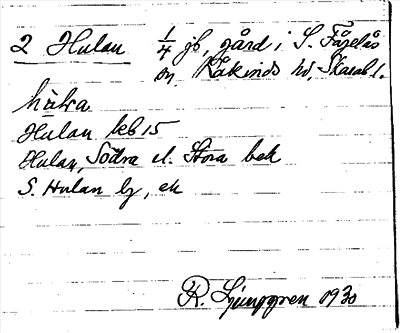 2 Hulan 1/4 jb, gård i S. Fågelås
sn, Kåkinds hd, Skarab. l.
hùlra
Hulan leb 15
Hulan, Södra el. Stora bek
S. Hulan by, ek
R. Ljunggren 1930